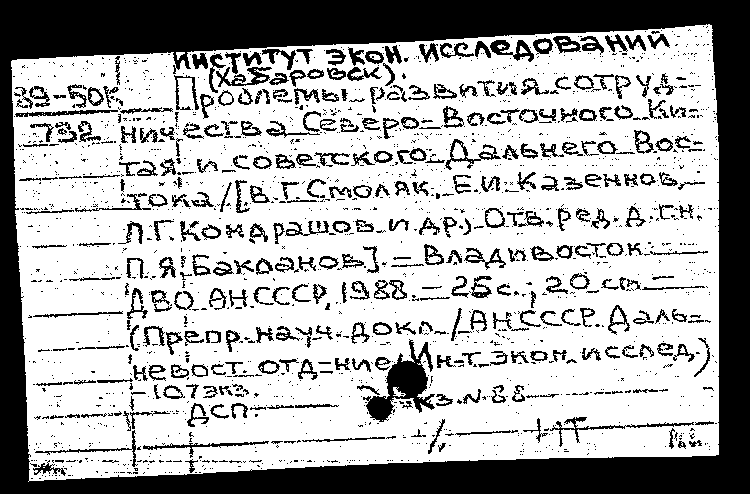 институт экон. исследований
(Хабаровск).
89-50К Проблемы развития сотруд=
732 ничества Северо=Восточного Ки=
тая и советского Дальнего Вос=
тока/[В.Г. Смоляк, Е.И. Казеннов,
Л.Г. Кондрашов и др.; Отв. ред. д.г.н.
П.Я. Бакланов]. = Владивосток:
ДВО АН СССР, 1988. - 25 с.; 20 cm. -
(Препр. науч. докл. / АН СССР. Даль=
невост. отд=ние, Ин-т экон. исслед.)
- 107 экз.
ДСП. N 88